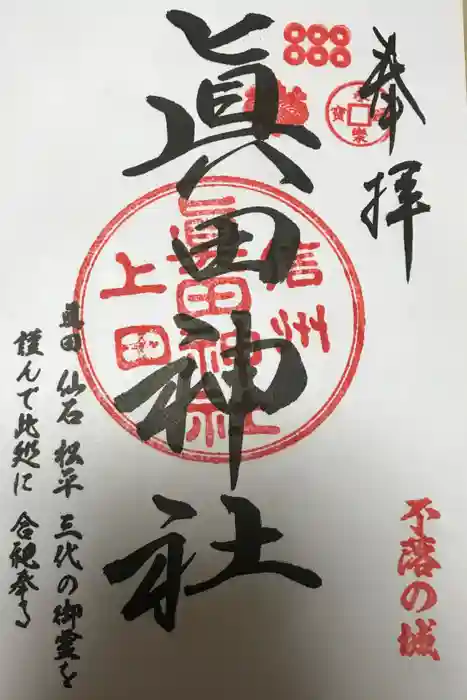 奉拝
眞田神社
信州
眞田神社
上田
不落の城
真田 仙石 松平 三代の御霊を
謹んで此処に 合祀奉る